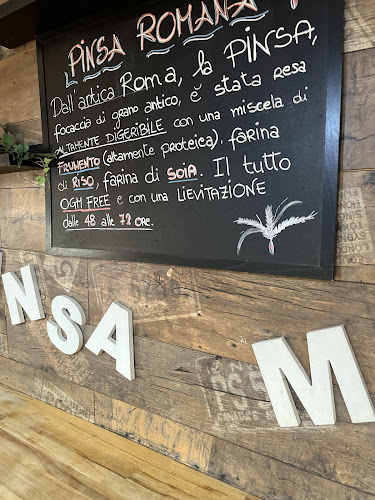 PINSA ROMANA
Dall'antica Roma, la PINSA,
focaccia di grano antico, è stata resa
ALTAMENTE DIGERIBILE con una miscela di
FRUMENTO (altamente proteica), farina
di RISO, farina di SOIA. Il tutto
OGM FREE e con una LIEVITAZIONE
dalle 48 alle 72 ORE.
NSA M